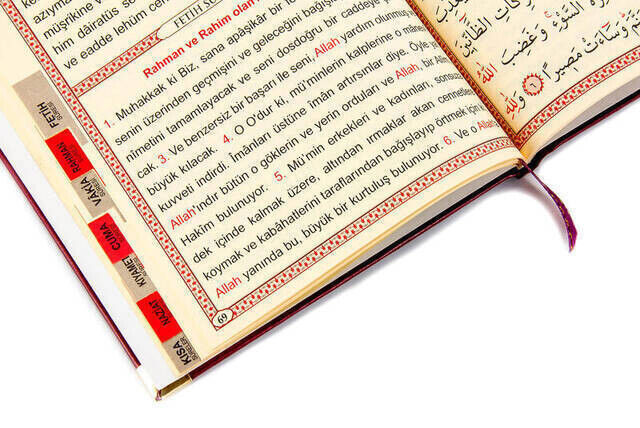 azıyma
müşrik
him dâiratüs
ve eadde lehüm cehe
FETİH SÛ
Rahman ve Rahim olan
1. Muhakkak ki Biz, sana apâşikâr bir
senin üzerinden geçmişini ve geleceğini bağışl
nimetini tamamlayacak ve seni dosdoğru bir caddeye
cak. 3. Ve benzersiz bir başarı ile seni, Allah yardım olunmuş
büyük kılacak. 4. O O'dur ki, mü'minlerin kalplerine o mâne
kuvveti indirdi. Îmânları üstüne îmân artırsınlar diye. Öyle y
Allah'ındır bütün o göklerin ve yerin orduları ve Allah, bir Alîm
Hakîm bulunuyor. 5. Mü'min erkekleri ve kadınları, sonsuz
dek içinde kalmak üzere, altından ırmaklar akan cennetler
koymak ve kabâhatlerini taraflarından bağışlayıp örtmek için
Allah yanında bu, büyük bir kurtuluş bulunuyor. 6. Ve o Allah
69
FETİH
SÛRESİ
RAHMAN
VÂKIA
SÛRESİ
CUMA
KIYAMET
NAZİAT
KISA
SURELER
الظَّانِّينَ
السَّوْءِ وَغَضِبَ اللّٰهُ
وَسَاءَتْ مَصِيرًا ﴿٦﴾ وَلِلّٰهِ